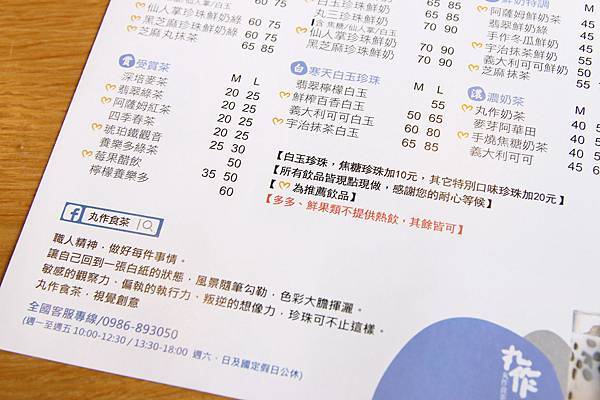 仙人掌珍珠鮮奶綠 60 75
黑芝麻珍珠鮮奶綠 60 75
芝麻丸抹茶 65 85
食 受質茶 M L
深培麥茶 20 25
翡翠綠茶 20 25
阿薩姆紅茶 20 25
四季春茶 20 25
琥珀鐵觀音 25 30
養樂多綠茶 50
莓果醋飲 35 50
檸檬養樂多 60
丸三珍珠鮮奶 65 85
仙人掌珍珠鮮奶 70 90
黑芝麻珍珠鮮奶 70 90
白 寒天白玉珍珠 M L
翡翠檸檬白玉 55
鮮榨百香白玉 50 65
義大利可可白玉 60 80
宇治抹茶白玉 60 80
鮮奶特調
阿薩姆鮮奶茶 45
翡翠鮮奶綠 45
手作冬瓜鮮奶
宇治抹茶鮮奶
義大利可可鮮奶
芝麻抹茶 55
濃 濃奶茶 M
丸作奶茶 40
麥芽阿華田 45
手燒焦糖奶茶 45
義大利可可
【白玉珍珠，焦糖珍珠加10元，其它特別口味珍珠加20元】
【所有飲品皆現點現做，感謝您的耐心等候】
【 為推薦飲品】
【多多、鮮果類不提供熱飲，其餘皆可】
f 丸作食茶
職人精神，做好每件事情。
讓自己回到一張白紙的狀態，風景隨筆勾勒，色彩大膽揮灑。
敏感的觀察力、偏執的執行力、叛逆的想像力，珍珠可不止這樣。
丸作食茶，視覺創意
全國客服專線/0986-893050
(週一至週五 10:00-12:30 / 13:30-18:00 週六、日及國定假日公休)
丸作